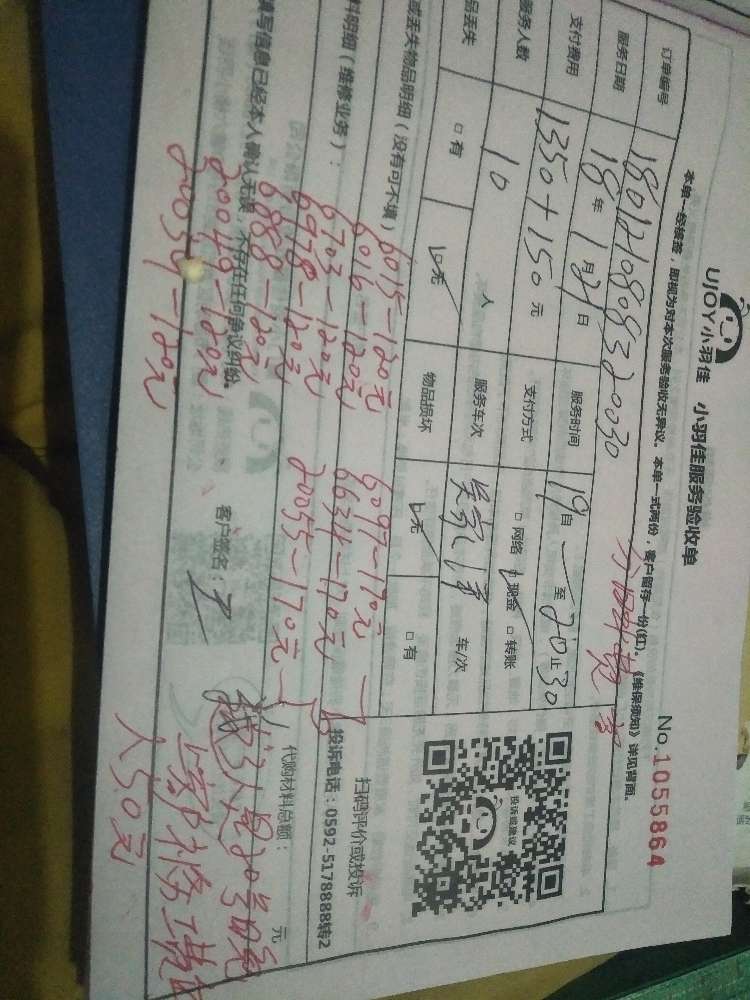 UJOY小羽佳 小羽佳服务验收单
No.1055864
本单一经核签，即视为对本次服务验收无异议。本单一式两份，客户留存一份(红)。《维保须知》详见背面。
订单编号 1801210808320030
服务日期 18年1月21日 服务时间 19自 至20止30
支付费用 1350+150元 支付方式 □网络 ☑现金 □转账
服务人数 10人 服务车次 车/次
品丢失 □有 ☑无 物品损坏 ☑无 □有
或丢失物品明细（没有可不填）
料明细（维修业务）：
6015-120元 6097-170元
6016-120元 6634-170元
6703-120元 20055-170元
6978-120元
6888-120元
20048-120元
20059-120元
扫码评价或投诉
投诉或建议
投诉电话：0592-5178888转2
代购材料总额： 元
填写信息已经本人确认无误，不存在任何争议纠纷。
客户签名：
这3人是20号晚
人50元